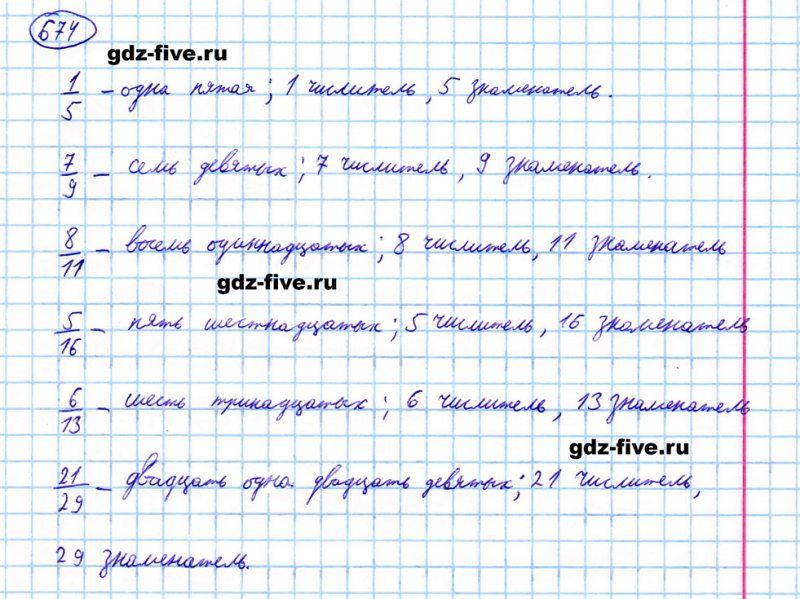 674
gdz-five.ru
1/5 – одна пятая; 1 числитель, 5 знаменатель.
7/9 – семь девятых; 7 числитель, 9 знаменатель.
8/11 – восемь одиннадцатых; 8 числитель, 11 знаменатель
gdz-five.ru
5/16 – пять шестнадцатых; 5 числитель, 16 знаменатель
6/13 – шесть тринадцатых; 6 числитель, 13 знаменатель
gdz-five.ru
21/29 – двадцать одна двадцать девятых; 21 числитель,
29 знаменатель.